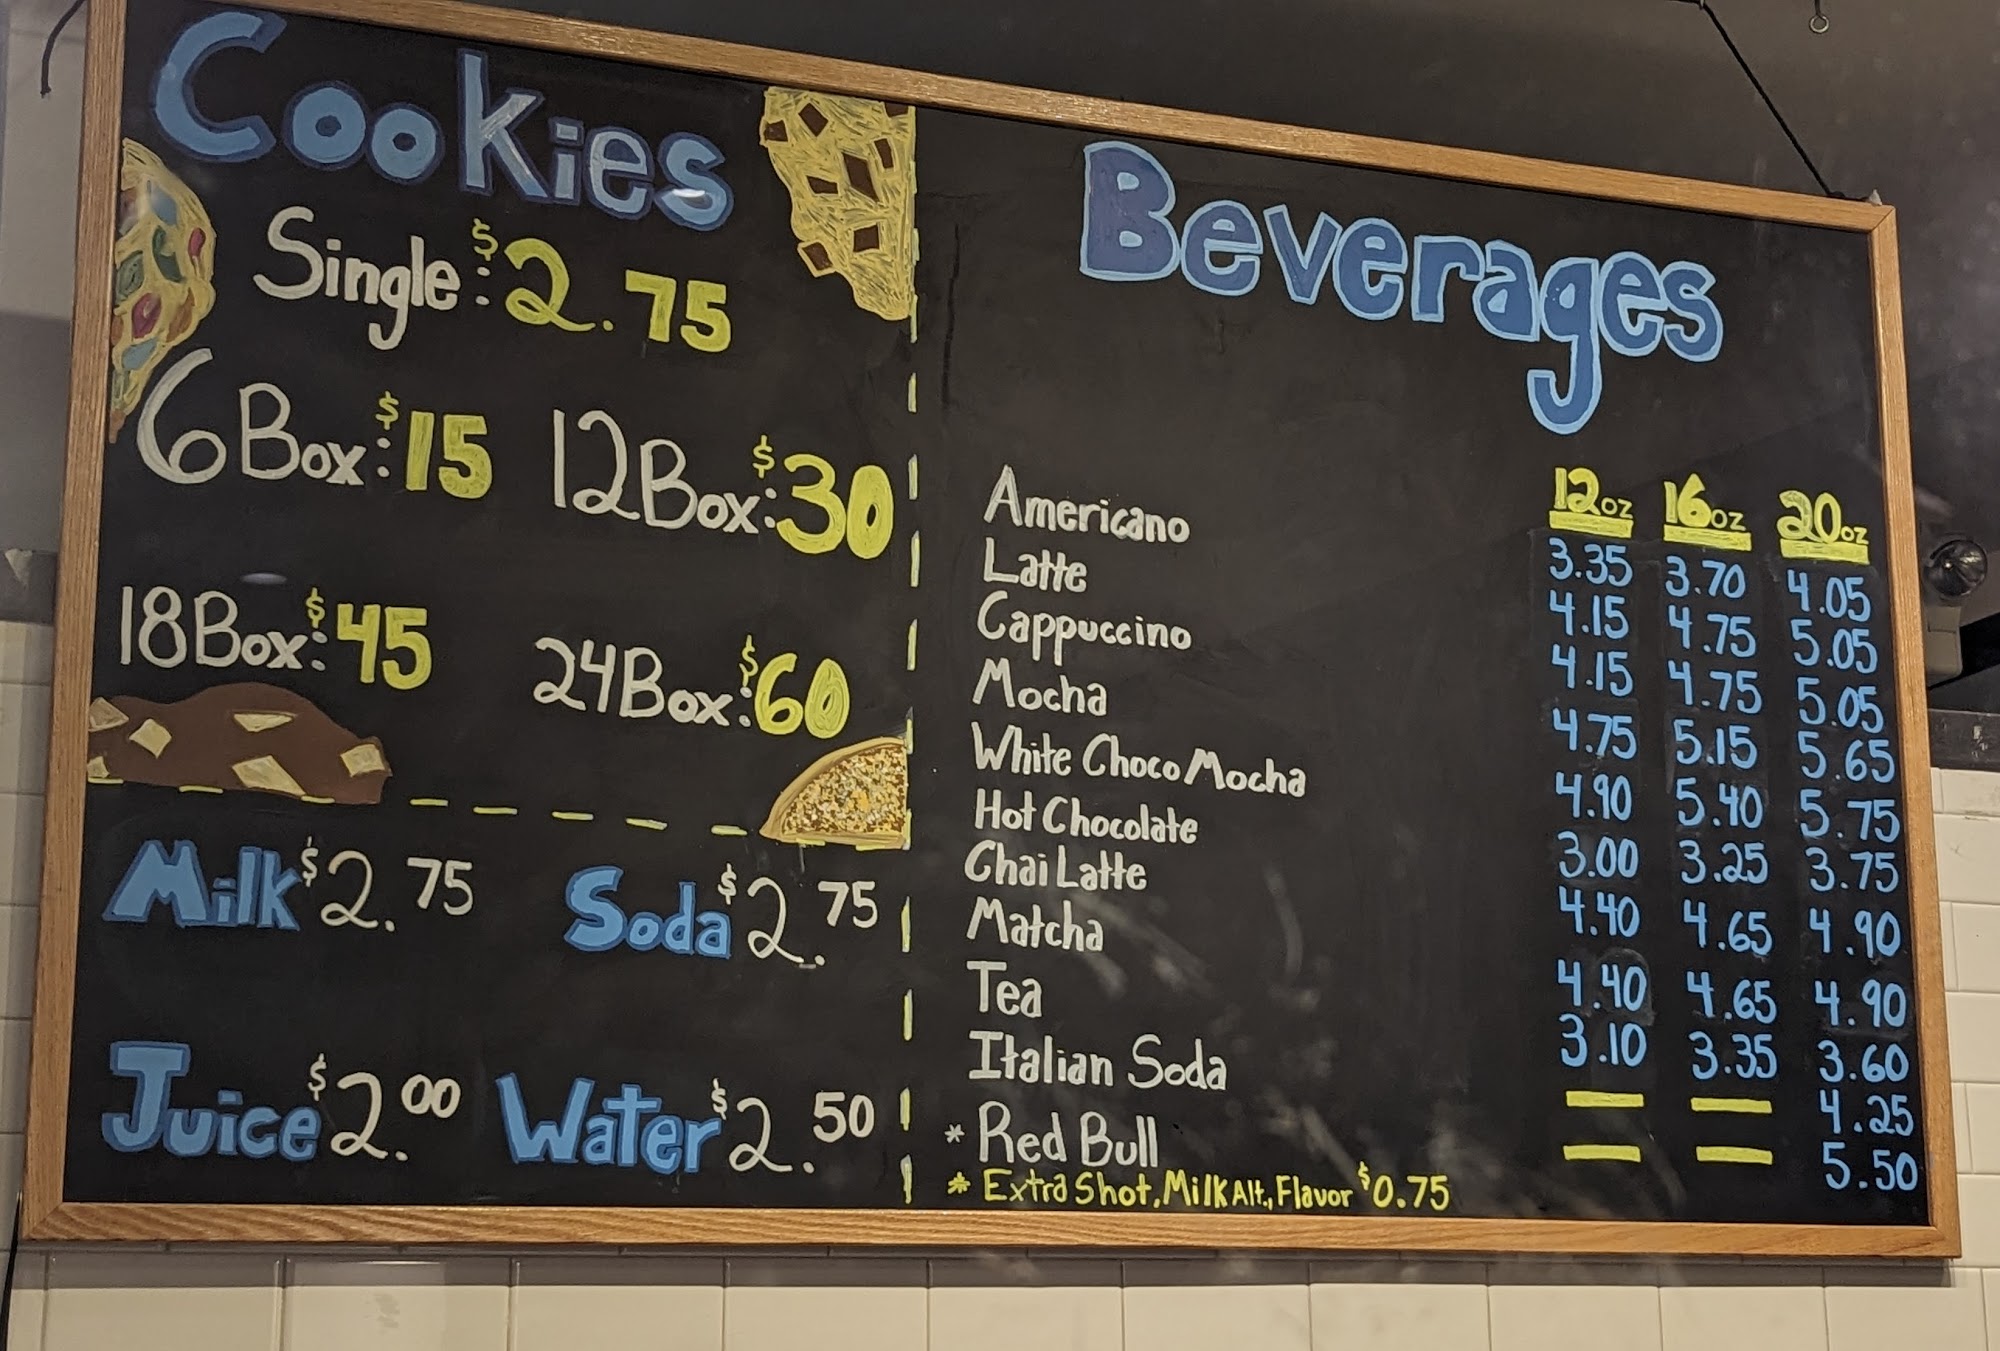 Cookies
Single: $2.75
6 Box: $15 12 Box: $30
18 Box: $45 24 Box: $60
Milk $2.75 Soda $2.75
Juice $2.00 Water $2.50
Beverages
12oz 16oz 20oz
Americano 3.35 3.70 4.05
Latte 4.15 4.75 5.05
Cappuccino 4.15 4.75 5.05
Mocha 4.75 5.15 5.65
White Choco Mocha 4.90 5.40 5.75
Hot Chocolate 3.00 3.25 3.75
Chai Latte 4.40 4.65 4.90
Matcha 4.40 4.65 4.90
Tea 3.10 3.35 3.60
Italian Soda — — 4.25
* Red Bull — — 5.50
* Extra Shot, Milk Alt., Flavor $0.75